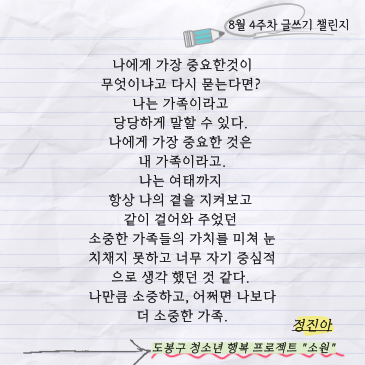 8월 4주차 글쓰기 챌린지
나에게 가장 중요한것이
무엇이냐고 다시 묻는다면?
나는 가족이라고
당당하게 말할 수 있다.
나에게 가장 중요한 것은
내 가족이라고.
나는 여태까지
항상 나의 곁을 지켜보고
같이 걸어와 주었던
소중한 가족들의 가치를 미쳐 눈
치채지 못하고 너무 자기 중심적
으로 생각 했던 것 같다.
나만큼 소중하고, 어쩌면 나보다
더 소중한 가족.
정진아
도봉구 청소년 행복 프로젝트 "소원"